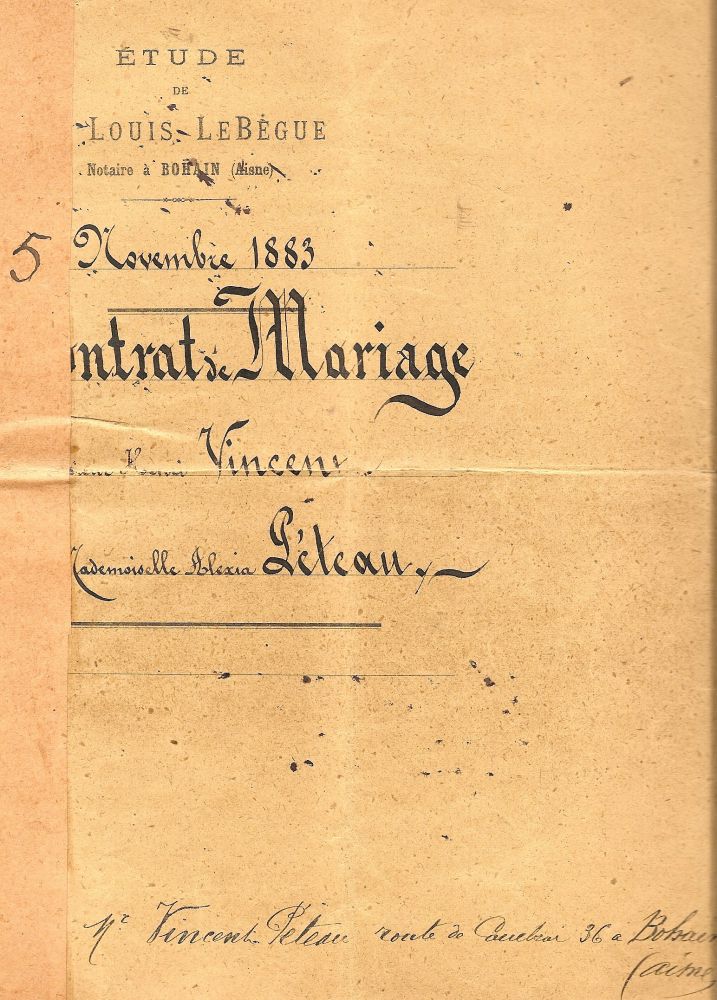 ÉTUDE
DE
LOUIS LEBÈGUE
Notaire à BOHAIN (Aisne)
5 Novembre 1883
ontrat de Mariage
Henri Vincent
ademoiselle Alexia Péteau
Mr Vincent-Péteau route de Cambrai 36 a Bohain
(aisne)